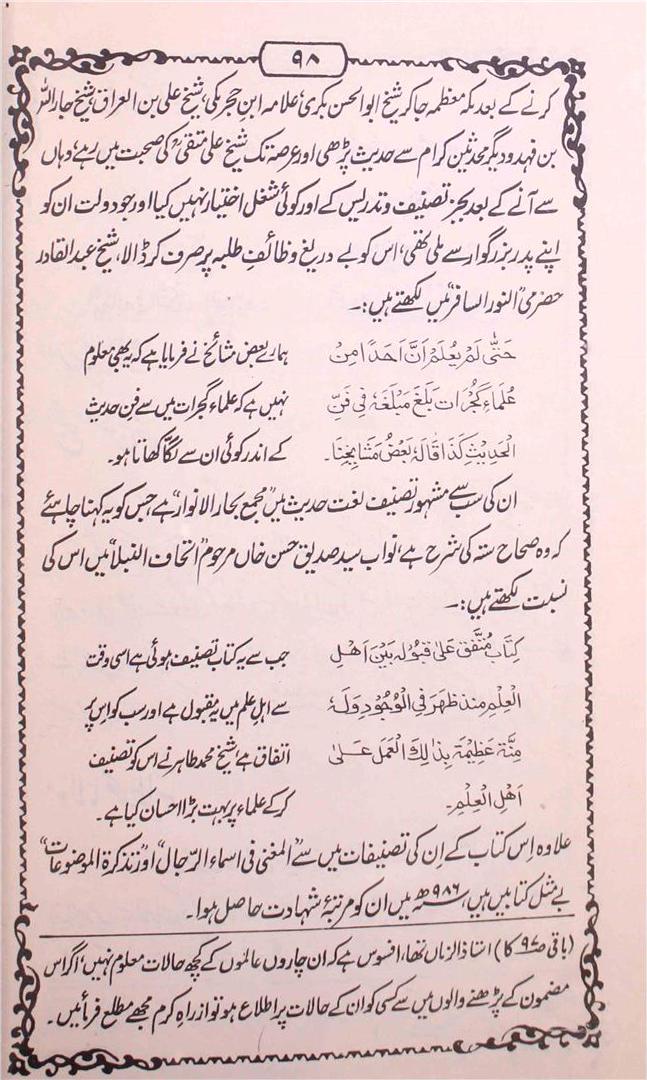 ۹۸
کرنے کے بعد مکہ معظمہ جاکر شیخ ابو الحسن بکری، علامہ ابن حجر مکی، شیخ علی بن العراق، شیخ جار اللہ
بن فہد و دیگر محدثین کرام سے حدیث پڑھی اور عرصہ تک شیخ علی متقیؒ کی صحبت میں رہے، وہاں
سے آنے کے بعد بجز تصنیف و تدریس کے اور کوئی شغل اختیار نہیں کیا اور جو دولت ان کو
اپنے پدر بزرگوار سے ملی تھی، اس کو بے دریغ وظائف طلبہ پر صرف کر ڈالا، شیخ عبد القادر
حضرمی "النور السافر" میں لکھتے ہیں:۔
حَتّٰی لَمْ یُعْلَمْ اَنَّ اَحَدًا مِنْ
عُلَمَاءِ گُجُرَات بَلَغَ مَبْلَغَهٗ فِی فَنِّ
الْحَدِیْثِ کَذَا قَالَهٗ بَعْضُ مَشَایِخِنَا۔
ہمارے بعض مشائخ نے فرمایا ہے کہ یہ بھی معلوم
نہیں ہے کہ علماء گجرات میں سے فن حدیث
کے اندر کوئی ان سے لگّا کھاتا ہو۔
ان کی سب سے مشہور تصنیف لغت حدیث میں "مجمع بحار الانوار" ہے جس کو یہ کہنا چاہئے
کہ وہ صحاح ستہ کی شرح ہے، نواب سید صدیق حسن خاں مرحوم "اتحاف النبلا" میں اس کی
نسبت لکھتے ہیں:۔
کِتَاب مُتَّفَق عَلٰی قَبُوْلِهٖ بَیْنَ اَهْلِ
الْعِلْمِ مُنذ ظَهَرَ فِی الْوُجُوْدِ وَلَهٗ
مِنَّة عَظِیْمَة بِذٰلِكَ الْعَمَلِ عَلٰی
اَهْلِ الْعِلْمِ۔
جب سے یہ کتاب تصنیف ہوئی ہے اسی وقت
سے اہل علم میں مقبول ہے اور سب کو اس پر
اتفاق ہے، شیخ محمد طاہر نے اس کو تصنیف
کر کے علماء پر بہت بڑا احسان کیا ہے۔
علاوہ اِس کتاب کے اِن کی تصنیفات میں سے "المغنی فی اسماء الرّجال" اور "تذکرة الموضوعات"
بے مثل کتابیں ہیں، ۹۸۶ھ میں ان کو مرتبۂ شہادت حاصل ہوا۔
(باقی صـ ۹۷ کا) استاذ الزماں تھا، افسوس ہے کہ ان چاروں عالموں کے کچھ حالات معلوم نہیں، اگر اس
مضمون کے پڑھنے والوں میں سے کسی کو ان کے حالات پر اطلاع ہو تو از راہِ کرم مجھے مطلع فرمائیں۔